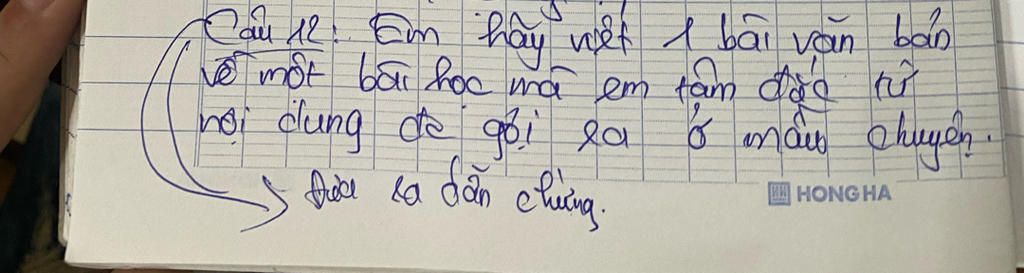 Câu 12: Em hãy viết 1 bài văn bản
về một bài học mà em tâm đắc từ
nội dung đc gợi ra ở mẩu chuyện.
Đưa ra dẫn chứng.
HONG HA